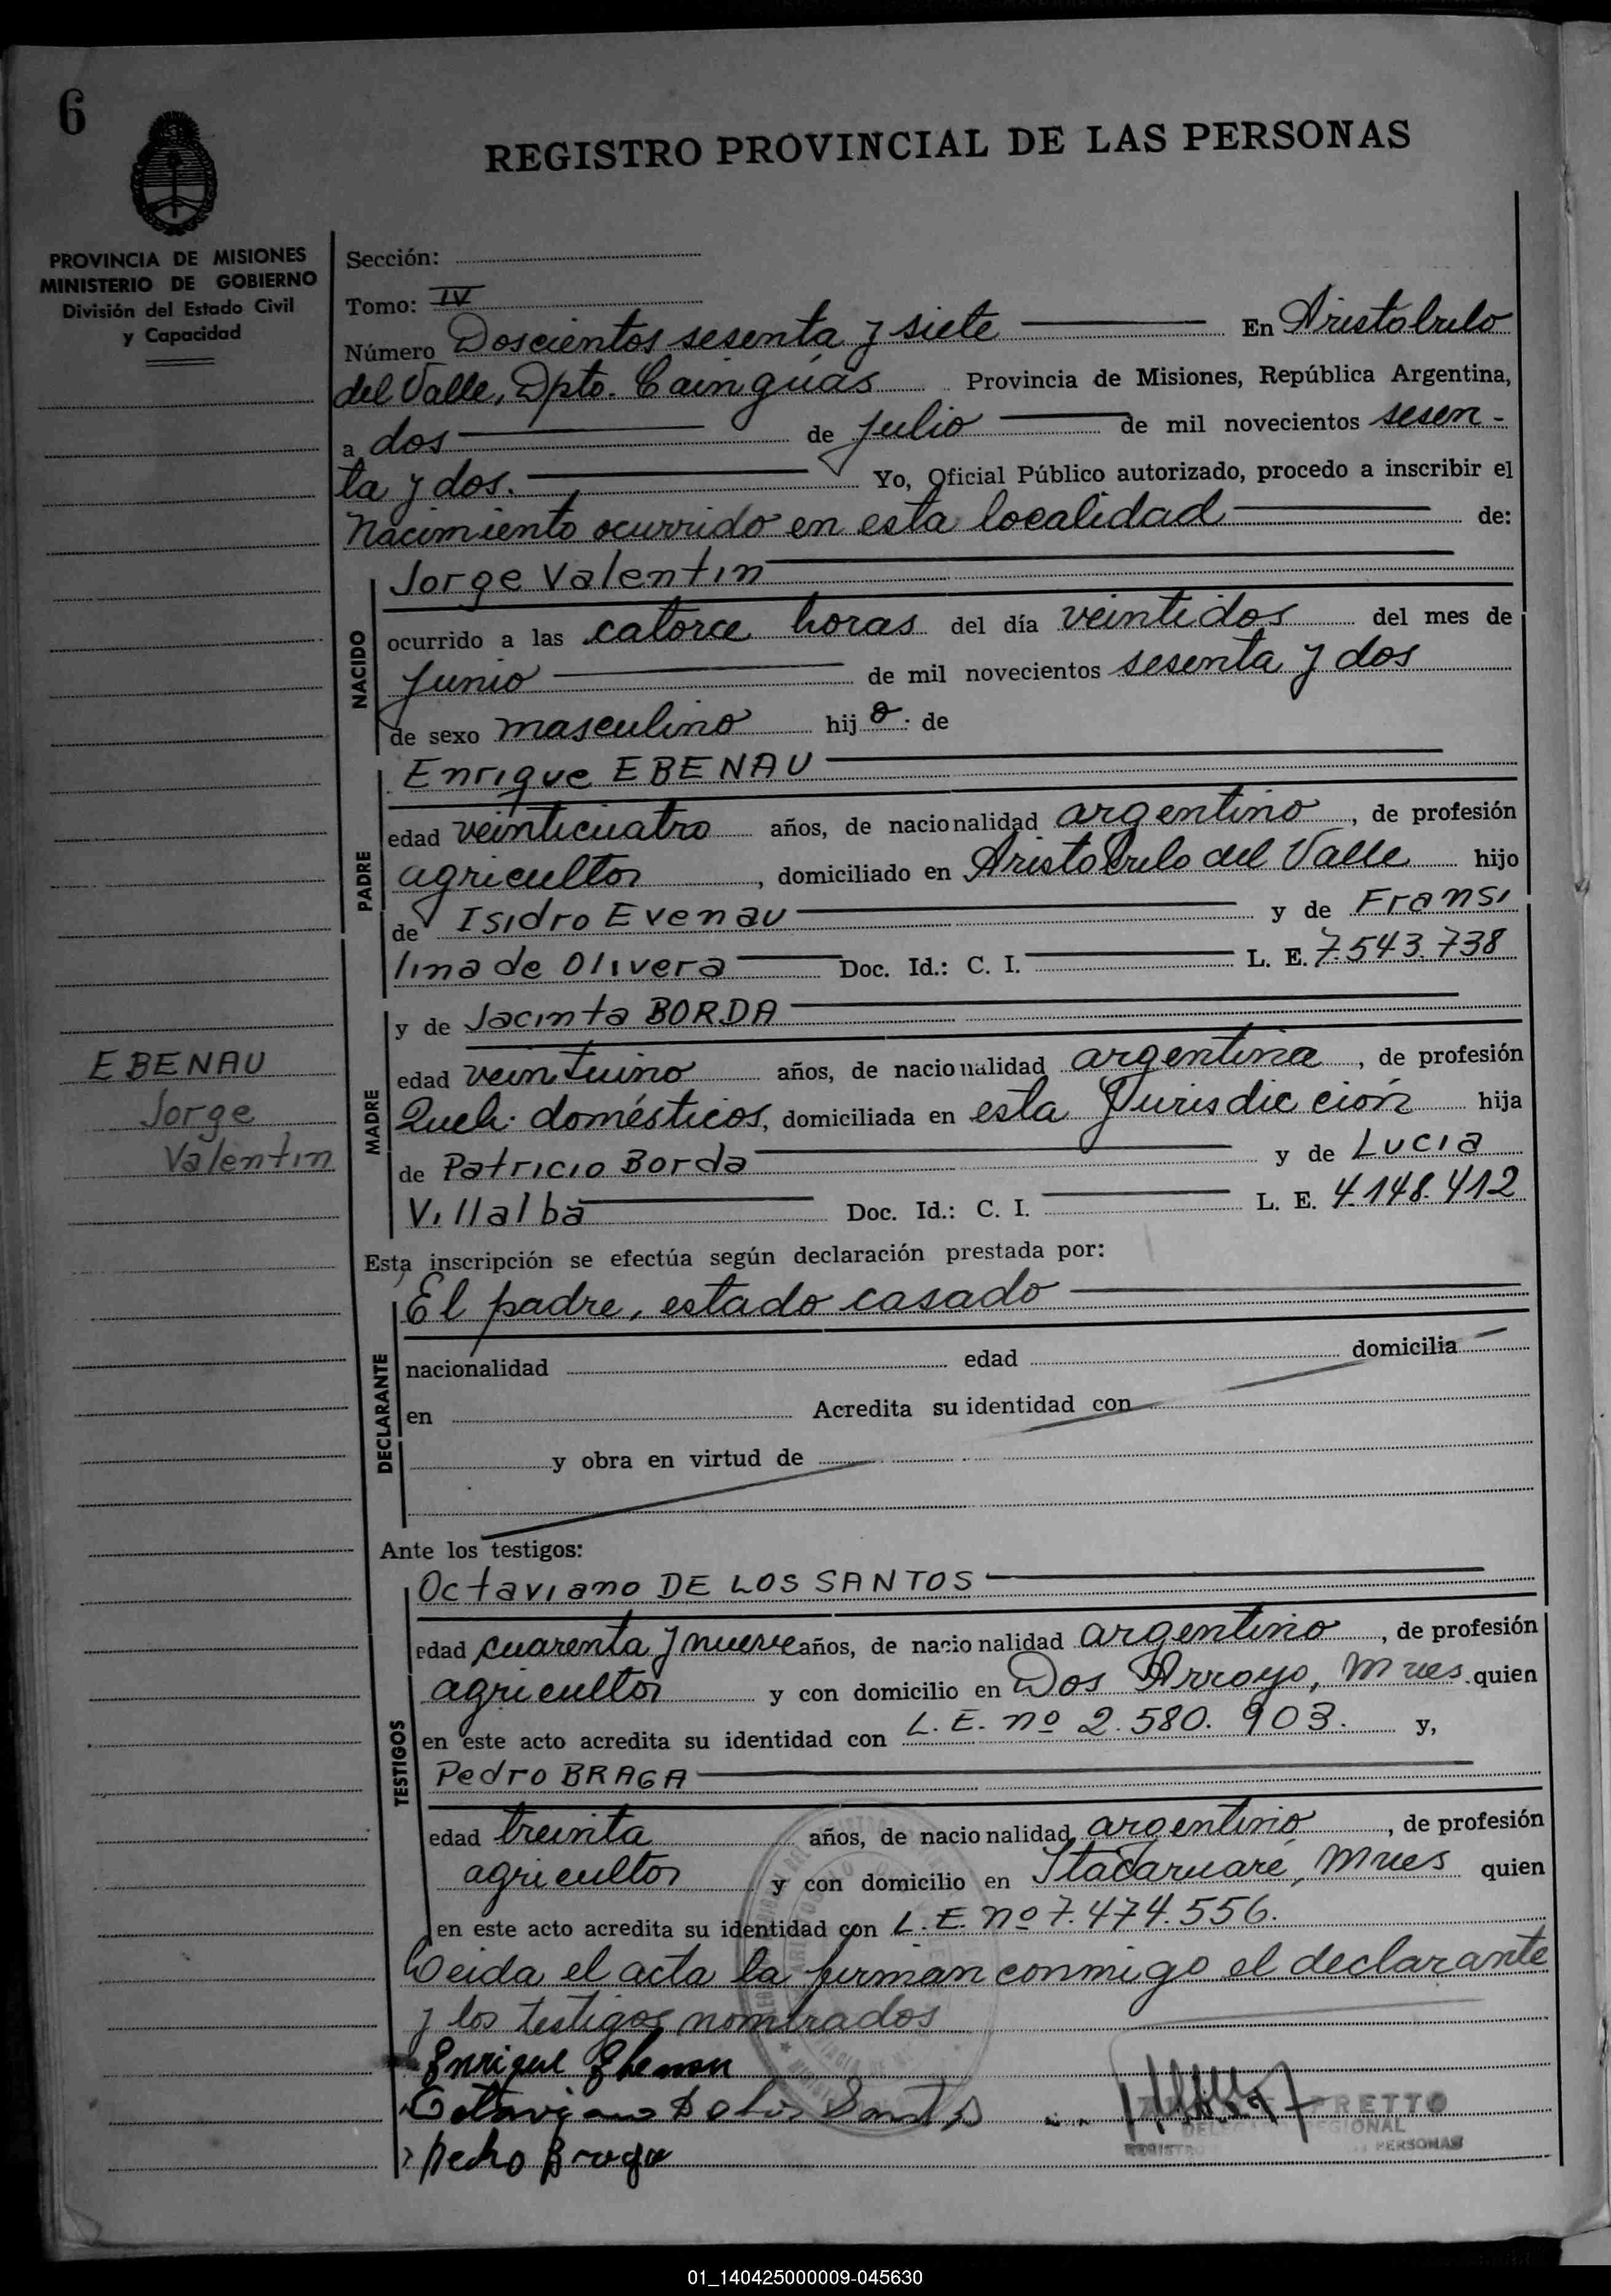 6
REGISTRO PROVINCIAL DE LAS PERSONAS
PROVINCIA DE MISIONES
MINISTERIO DE GOBIERNO
División del Estado Civil
y Capacidad
Sección:
Tomo: IV
Número Doscientos sesenta y siete En Aristobulo
del Valle, Dpto. Cainguás Provincia de Misiones, República Argentina,
a dos de julio de mil novecientos sesen-
ta y dos. Yo, Oficial Público autorizado, procedo a inscribir el
Nacimiento ocurrido en esta localidad de:
NACIDO
Jorge Valentin
ocurrido a las catorce horas del día veintidos del mes de
junio de mil novecientos sesenta y dos
de sexo masculino hij o. de
PADRE
Enrique EBENAU
edad veinticuatro años, de nacionalidad argentino, de profesión
agricultor, domiciliado en Aristobulo del Valle hijo
de Isidro Evenau y de Fransi
lina de Olivera Doc. Id.: C. I. L. E. 7.543.738
MADRE
y de Jacinta BORDA
edad veintiuno años, de nacionalidad argentina, de profesión
Queh. domésticos, domiciliada en esta Jurisdicción hija
de Patricio Borda y de Lucia
Villalba Doc. Id.: C. I. L. E. 4.148.412
EBENAU
Jorge
Valentin
Esta inscripción se efectúa según declaración prestada por:
DECLARANTE
El padre, estado casado
nacionalidad edad domicilia
en Acredita su identidad con
y obra en virtud de
Ante los testigos:
TESTIGOS
Octaviano DE LOS SANTOS
edad cuarenta y nueve años, de nacionalidad argentino, de profesión
agricultor y con domicilio en Dos Arroyo, Mnes. quien
en este acto acredita su identidad con L. E. nº 2.580.903. y,
Pedro BRAGA
edad treinta años, de nacionalidad argentino, de profesión
agricultor y con domicilio en Itacaruaré, Mnes quien
en este acto acredita su identidad con L. E. nº 7.474.556.
Leida el acta la firman conmigo el declarante
y los testigos nombrados
Enrique Ebenau
Octaviano De Los Santos
Pedro Braga
PERSONAS
01_140425000009-045630